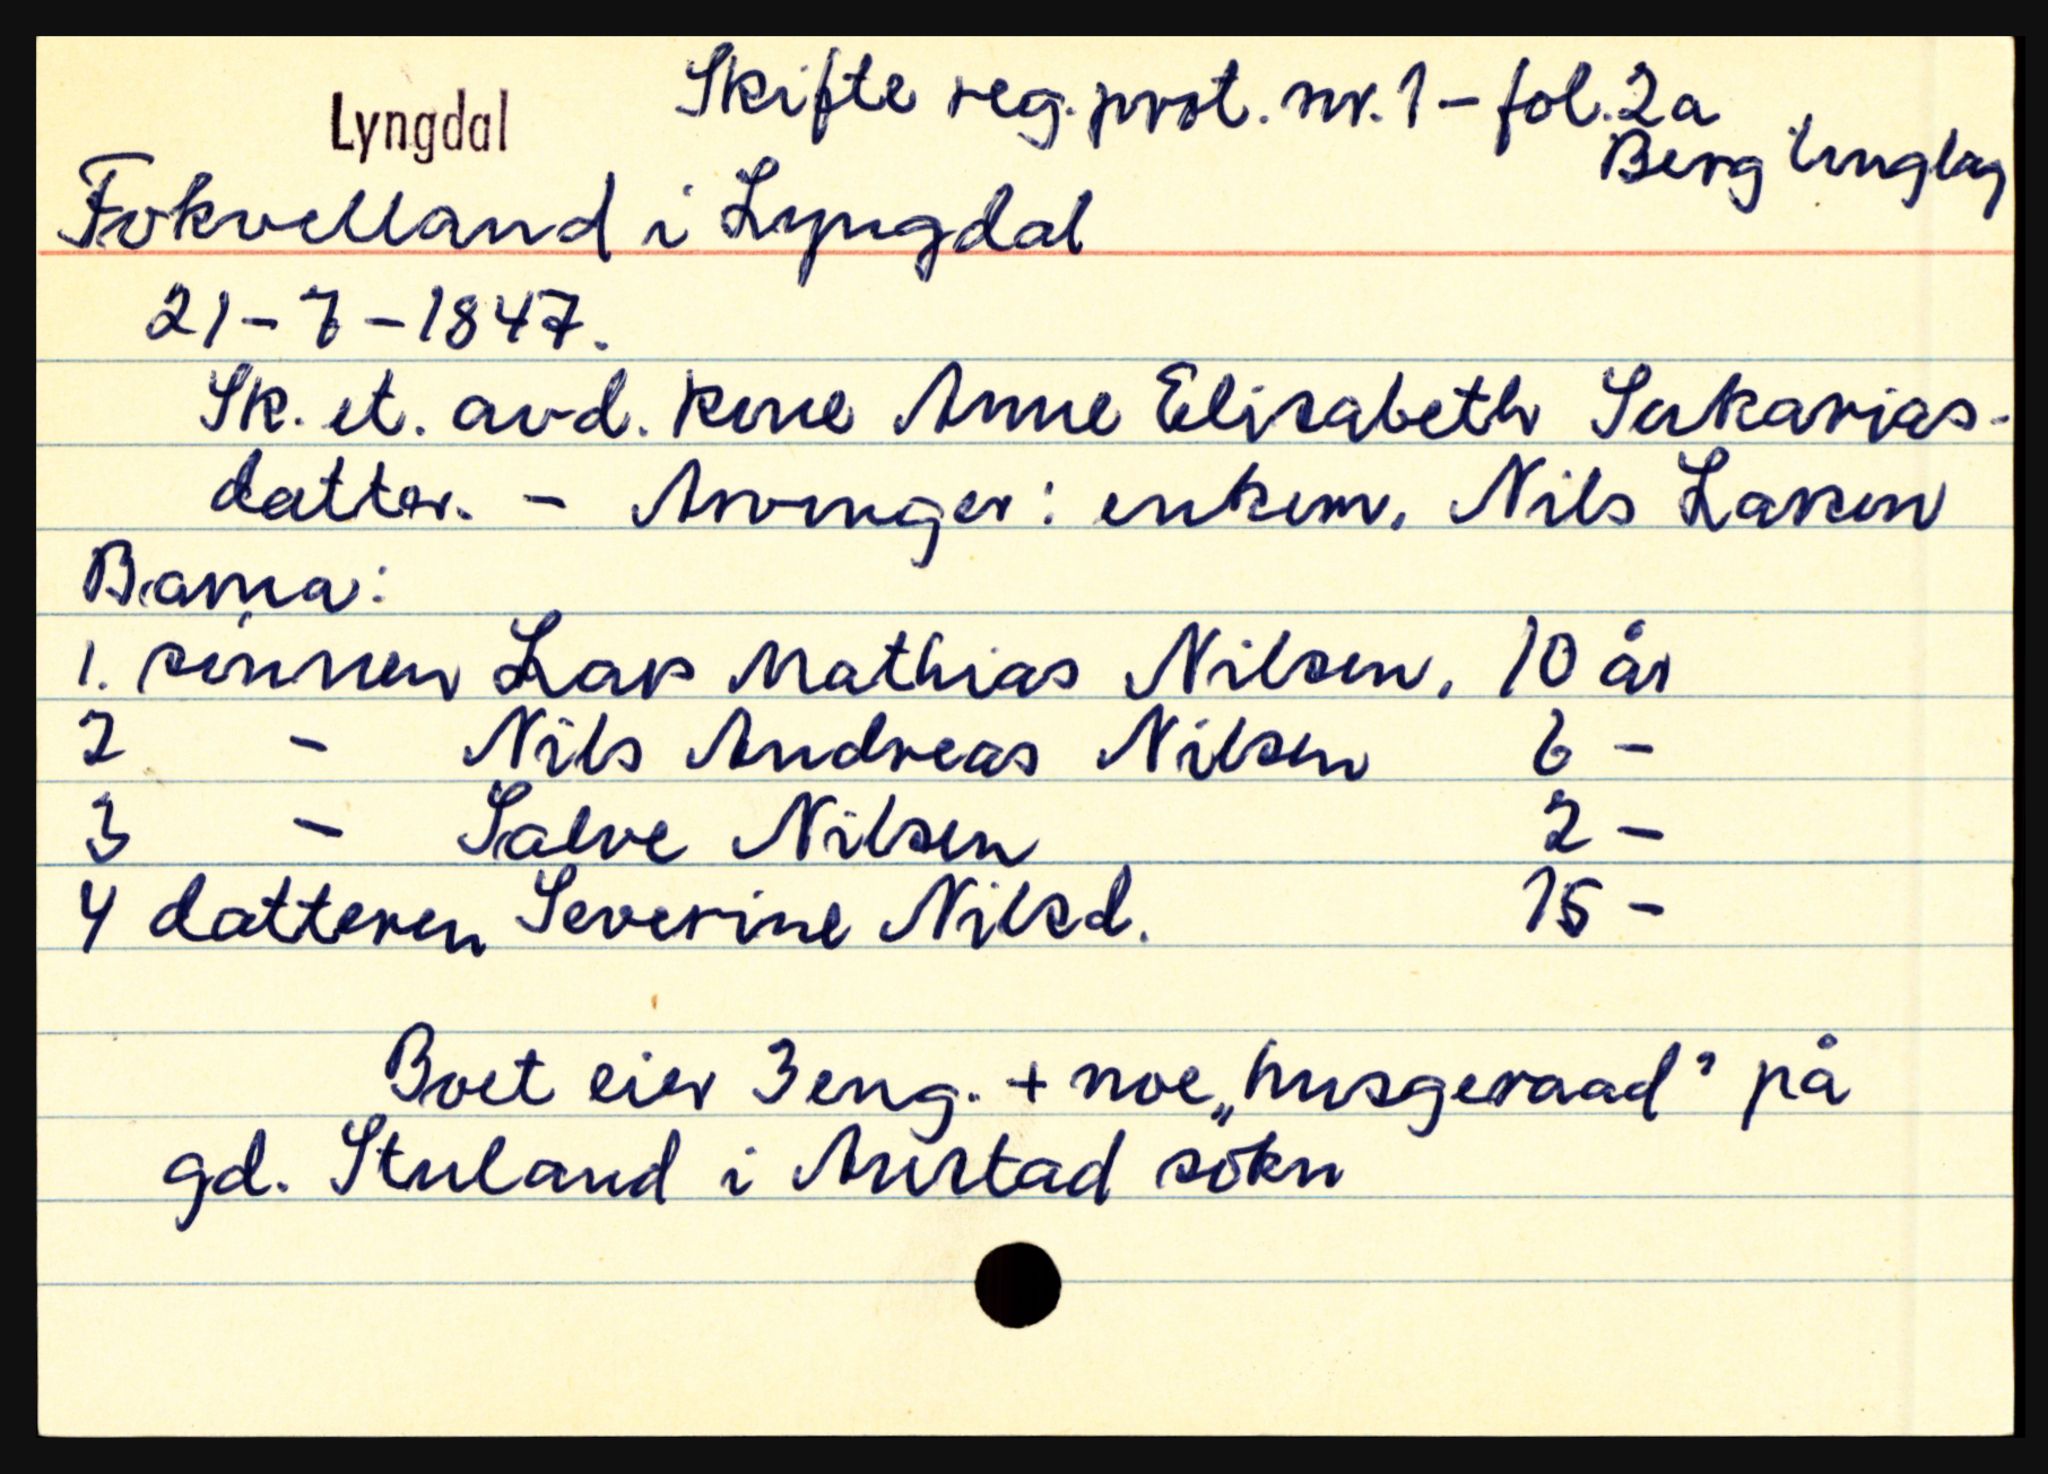 Lyngdal
Skifte reg. prot. nr. 1 - fol. 2a
Berg tinglag
Fokvelland i Lyngdal
21-7-1847.
Sk. et. avd. kone Anne Elisabeth Sakarias-
datter. - Arvinger: enkem. Nils Larsen
Barna:
1. sønnen Lars Mathias Nilsen. 10 år
2 - Nils Andreas Nilsen 6 -
3 - Salve Nilsen 2 -
4 datteren Severine Nilsd. 15 -
Boet eier 3 eng. + noe „husgeraad” på
gd. Stuland i Austad sokn